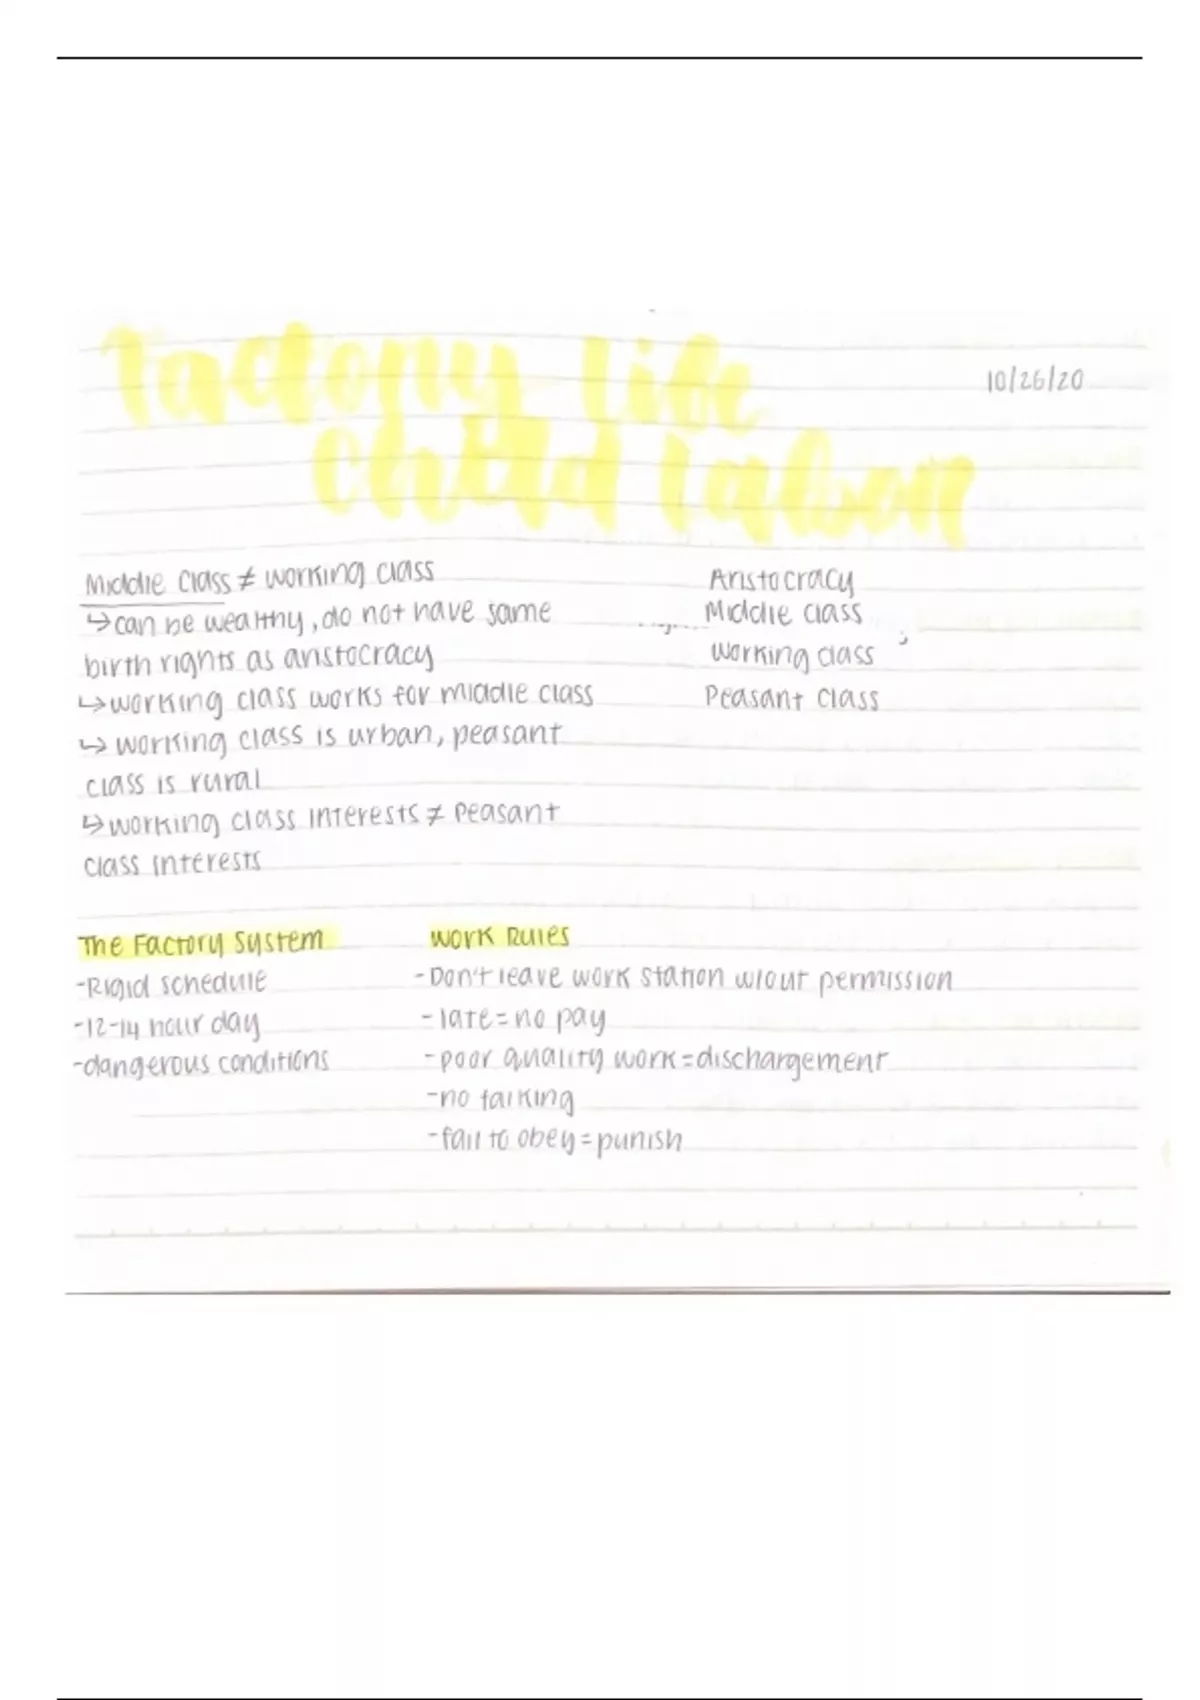 Factory Life
10/26/20
Child Labor
Middle Class ≠ working class
↳ can be wealthy, do not have same
birth rights as aristocracy
↳ working class works for middle class
↳ working class is urban, peasant
class is rural
↳ working class interests ≠ Peasant
class interests
Aristocracy
Middle class
Working class
Peasant Class
The Factory System
-Rigid schedule
-12-14 hour day
-dangerous conditions
Work Rules
-Don't leave work station w/out permission
-late=no pay
-poor quality work=dischargement
-no talking
-fail to obey=punish